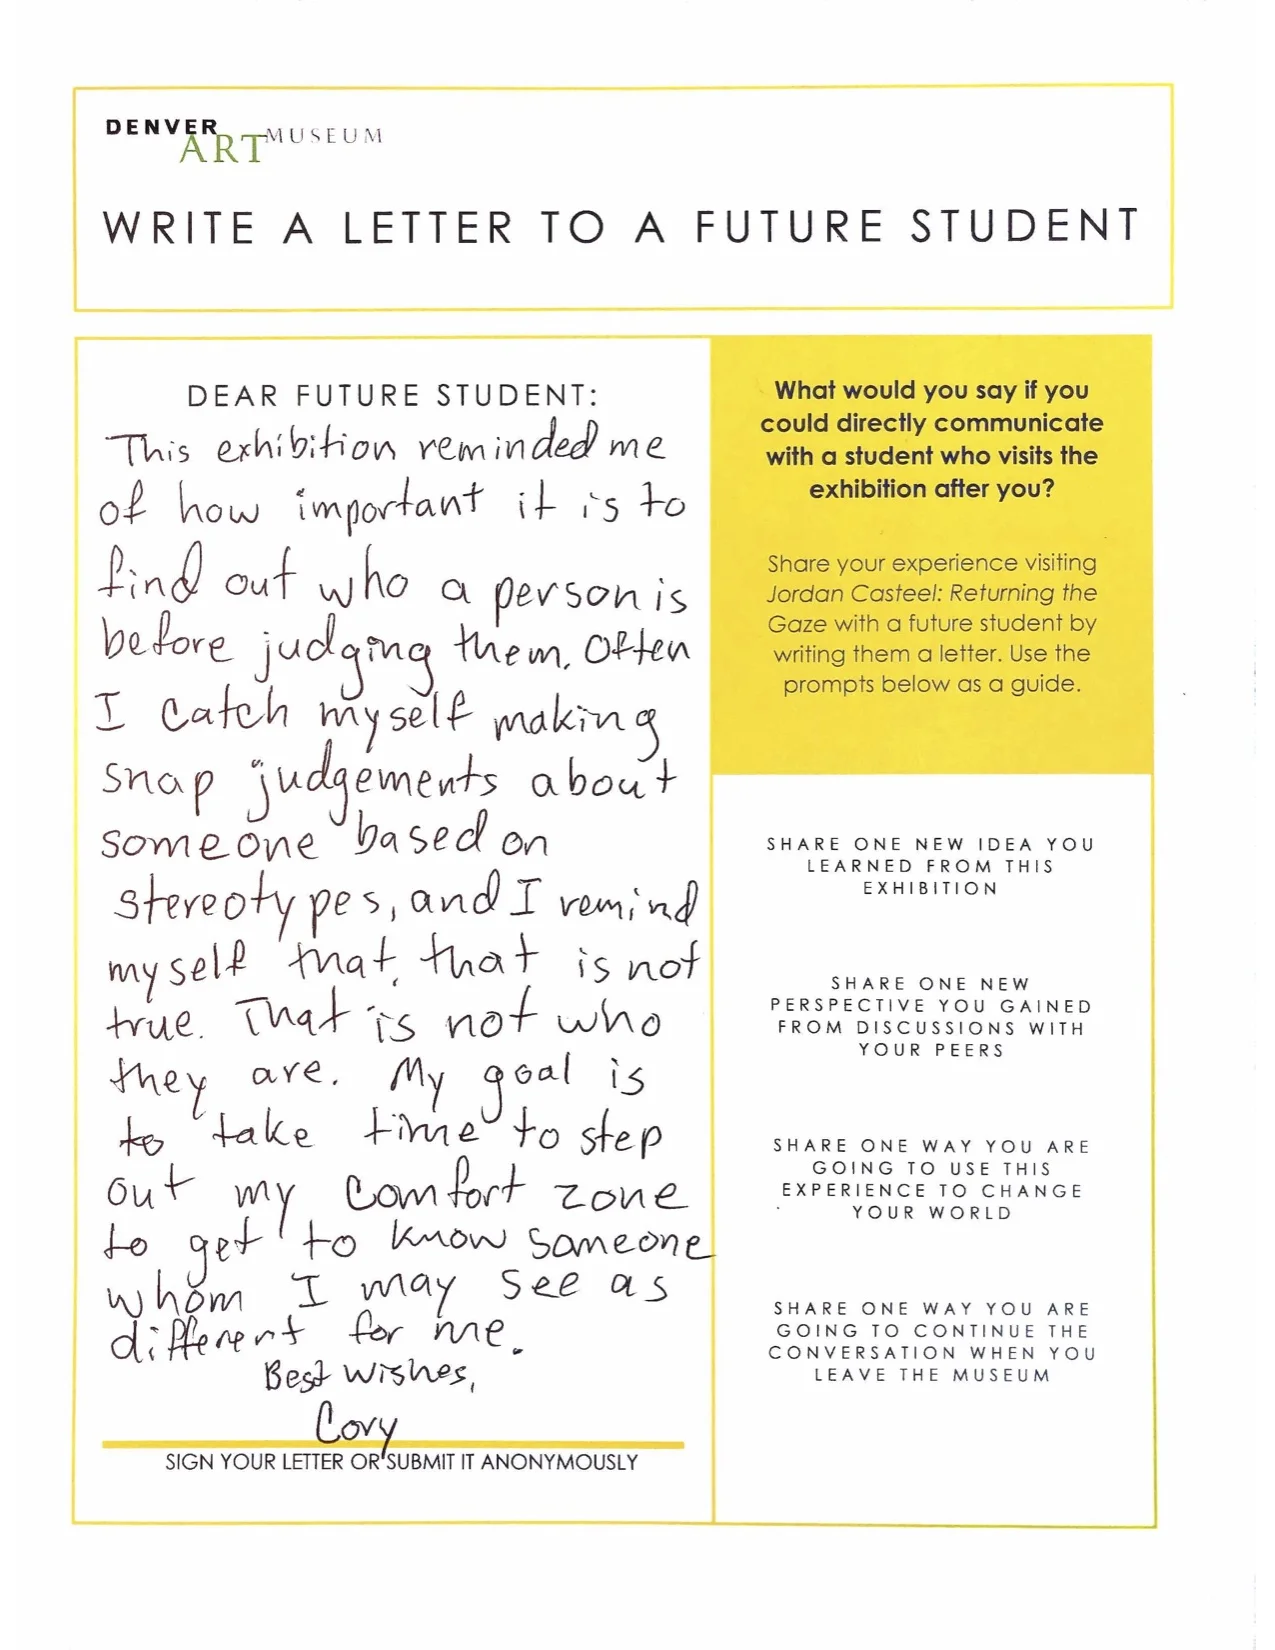 DENVER
ART MUSEUM
WRITE A LETTER TO A FUTURE STUDENT
DEAR FUTURE STUDENT:
This exhibition reminded me
of how important it is to
find out who a person is
before judging them. Often
I catch myself making
snap judgements about
someone based on
stereotypes, and I remind
myself that, that is not
true. That is not who
they are. My goal is
to take time to step
out my comfort zone
to get to know someone
whom I may see as
different for me.
Best Wishes,
Cory
SIGN YOUR LETTER OR SUBMIT IT ANONYMOUSLY
What would you say if you
could directly communicate
with a student who visits the
exhibition after you?
Share your experience visiting
Jordan Casteel: Returning the
Gaze with a future student by
writing them a letter. Use the
prompts below as a guide.
SHARE ONE NEW IDEA YOU
LEARNED FROM THIS
EXHIBITION
SHARE ONE NEW
PERSPECTIVE YOU GAINED
FROM DISCUSSIONS WITH
YOUR PEERS
SHARE ONE WAY YOU ARE
GOING TO USE THIS
EXPERIENCE TO CHANGE
YOUR WORLD
SHARE ONE WAY YOU ARE
GOING TO CONTINUE THE
CONVERSATION WHEN YOU
LEAVE THE MUSEUM